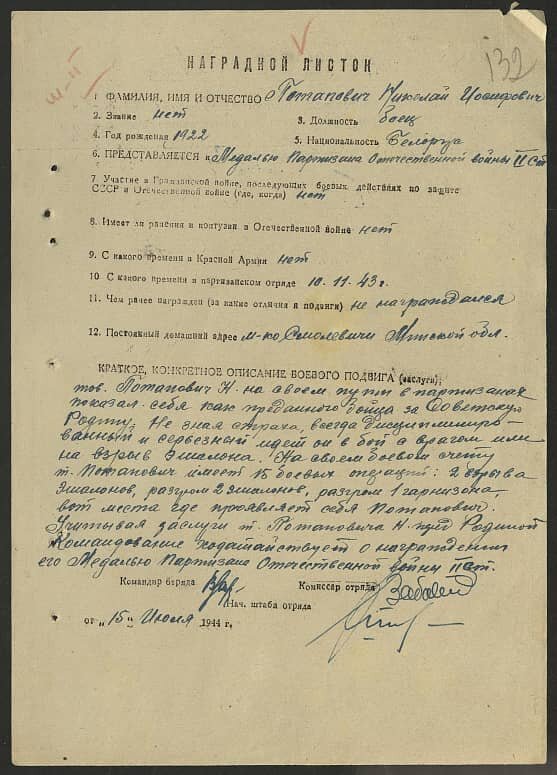 132
НАГРАДНОЙ ЛИСТОК
1. ФАМИЛИЯ, ИМЯ И ОТЧЕСТВО Потапович Николай Иосифович
2. Звание нет 3. Должность боец
4. Год рождения 1922 5. Национальность Беларус
6. ПРЕДСТАВЛЯЕТСЯ к Медалью Партизана Отечественной войны II ст
7. Участие в Гражданской войне, последующих боевых действиях по защите
СССР и Отечественной войне (где, когда) нет
8. Имеет ли ранения и контузии в Отечественной войне нет
9. С какого времени в Красной Армии нет
10. С какого времени в партизанском отряде 10.11.43 г.
11. Чем ранее награжден (за какие отличия и подвиги) не награждался
12. Постоянный домашний адрес м-ко, Смолевичи Минской обл.
КРАТКОЕ, КОНКРЕТНОЕ ОПИСАНИЕ БОЕВОГО ПОДВИГА (заслуги):
тов. Потапович Н. на своем пути в партизанах
показал себя как преданного бойца за Советскую
Родину. Не зная страха, всегда дисциплиниро-
ванный и серьезный идет он в бой с врагом или
на взрыв эшалона. На своем боевом счету
т. Потапович имеет 15 боевых операций: 2 взрыва
эшалонов, разгром 2 эшалонов, разгром 1 гарнизона,
вот места где проявляет себя Потапович.
Учитывая заслуги т. Потаповича Н. пред Родиной
Командование ходатайствует о награждении
его Медалью Партизана Отечественной войны II ст.
Командир отряда Комиссар отряда
Нач. штаба отряда
от „15" Июля 1944 г,